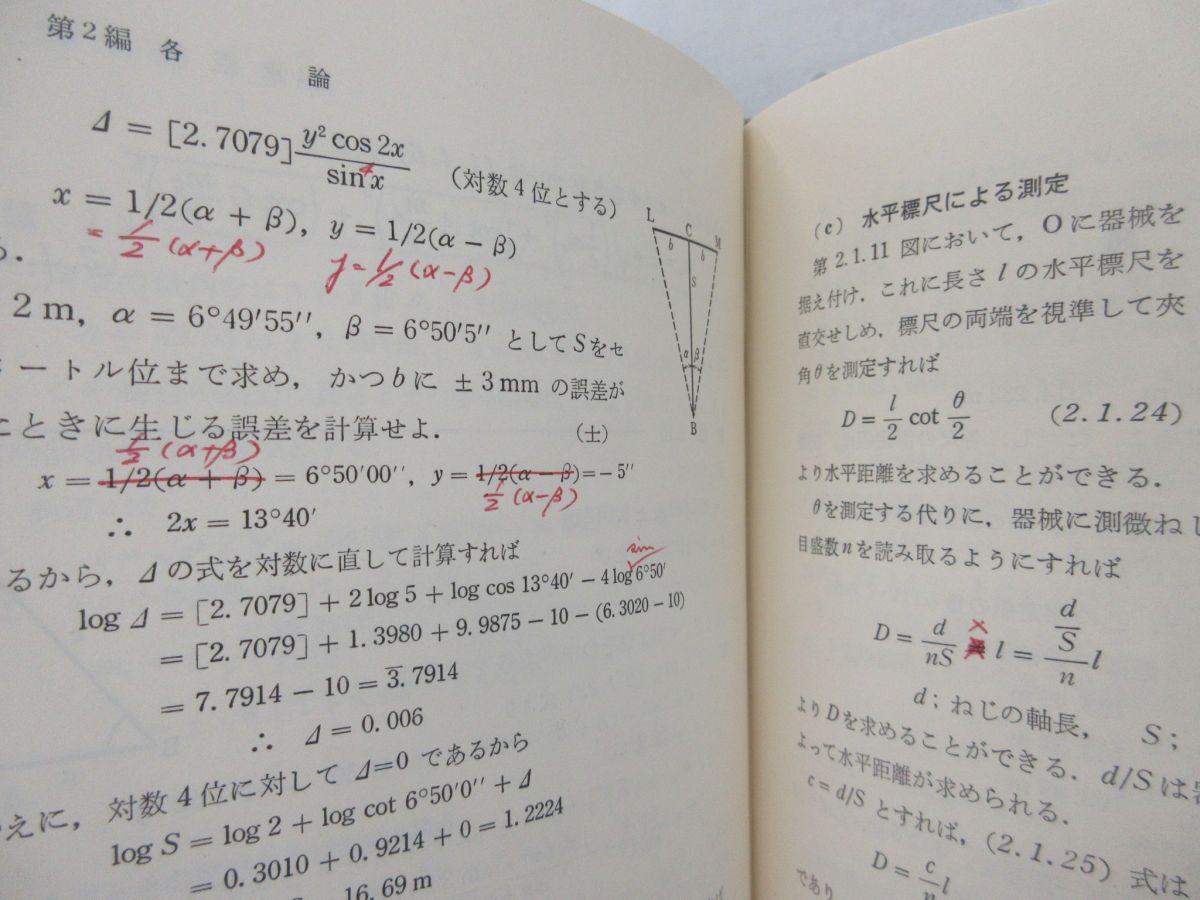 第2編 各 論
Δ = [2.7079] y² cos 2x / sin⁴ x (対数4位とする)
x = 1/2(α + β), y = 1/2(α − β)
= 1/2 (α+β) y = 1/2 (α−β)
る.
2 m, α = 6°49′55′′, β = 6°50′5′′ としてSをセ
ートル位まで求め, かつbに ±3 mm の誤差が
ときに生じる誤差を計算せよ. (士)
1/2 (α+β)
x = 1/2(α + β) = 6°50′00′′, y = 1/2(α − β) = −5′′
1/2 (α−β)
∴ 2x = 13°40′
るから, Δの式を対数に直して計算すれば
sin
log Δ = [2.7079] + 2 log 5 + log cos 13°40′ − 4 log 6°50′
= [2.7079] + 1.3980 + 9.9875 − 10 − (6.3020 − 10)
= 7.7914 − 10 = 3̅.7914
∴ Δ = 0.006
えに, 対数4位に対して Δ=0 であるから
log S = log 2 + log cot 6°50′0′′ + Δ
= 0.3010 + 0.9214 + 0 = 1.2224
16.69 m
L C M
b b
S
α β
B
(c) 水平標尺による測定
第2.1.11図において, Oに器械を
据え付け. これに長さ l の水平標尺を
直交せしめ, 標尺の両端を視準して夾
角θを測定すれば
D = l/2 cot θ/2 (2.1.24)
より水平距離を求めることができる.
θを測定する代りに, 器械に測微ねじ
目盛数nを読み取るようにすれば
×
D = d/nS l = d/S/n l
d; ねじの軸長, S;
よりDを求めることができる. d/Sは
よって水平距離が求められる.
c = d/S とすれば, (2.1.25) 式は
D = c/n l
であり